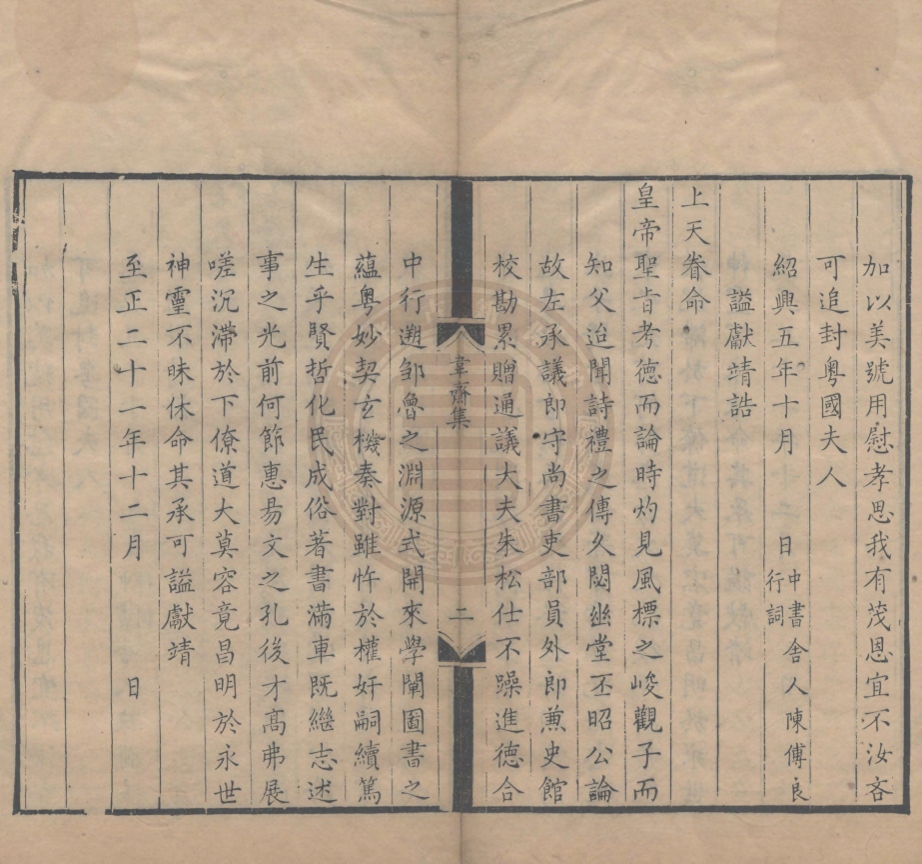 加以美號用慰孝思我有茂恩宜不汝吝
可追封粤國夫人
紹興五年十月　　日中書舍人陳傅良
行詞
謚獻靖誥
上天眷命
皇帝聖旨考德而論時灼見風標之峻觀子而
知父迨聞詩禮之傳久閟幽堂丕昭公論
故左承議郎守尚書吏部員外郎兼史館
校勘累贈通議大夫朱松仕不躁進德合
韋齋集
二
中行遡鄒魯之淵源式開來學闡圖書之
蘊奥妙契玄機奏對雖忤於權奸嗣續篤
生乎賢哲化民成俗著書滿車既繼志述
事之光前何節惠易文之孔後才高弗展
嗟沉滯於下僚道大莫容竟昌明於永世
神靈不昧休命其承可謚獻靖
至正二十一年十二月　　日